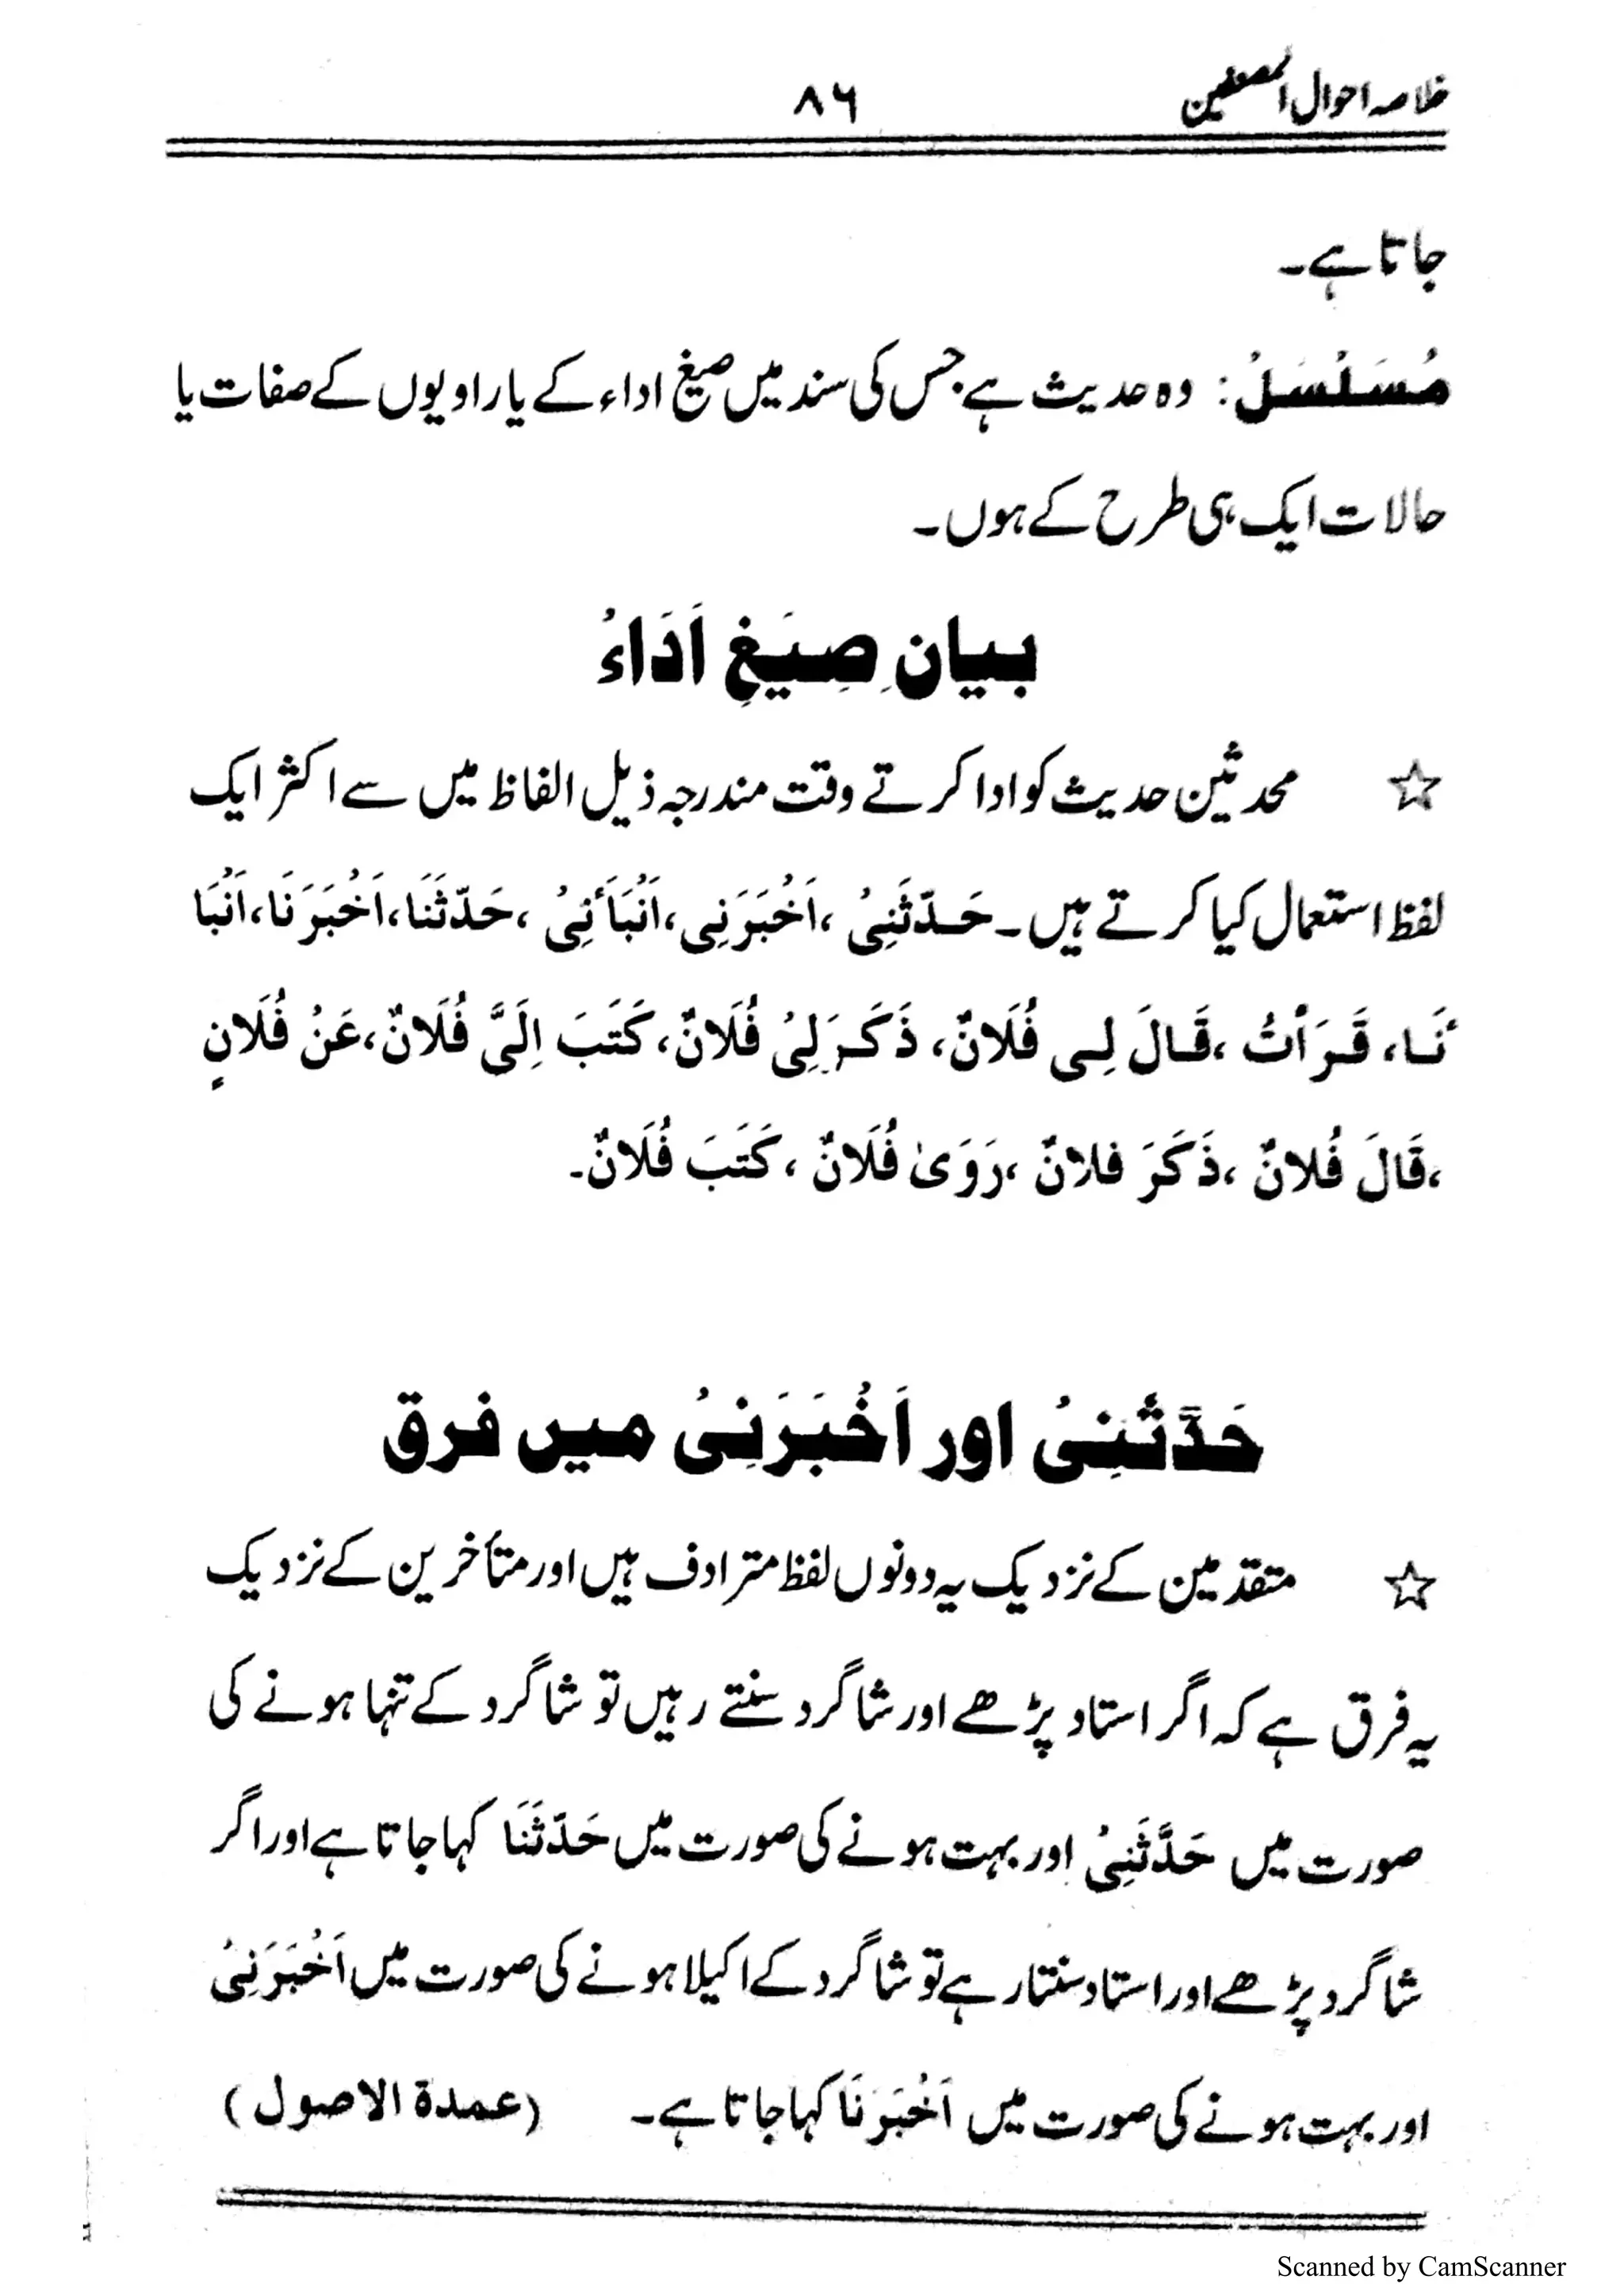 خلاصہ احوال المصنفین
۸۶
جاتا ہے۔
مُسَلْسَلْ: وہ حدیث ہے جس کی سند میں صیغ اداء کے یا راویوں کے صفات یا
حالات ایک ہی طرح کے ہوں۔
بیانِ صِیَغِ اَدَاءْ
☆ محدثین حدیث کو ادا کرتے وقت مندرجہ ذیل الفاظ میں سے اکثر ایک
لفظ استعمال کیا کرتے ہیں۔ حَدَّثَنِیْ، اَخْبَرَنِی، اَنْبَأَنِیْ، حَدَّثَنَا، اَخْبَرَنَا، اَنْبَا
ئَنَا، قَرَأْتُ، قَالَ لِی فُلَانٌ، ذَکَرَ لِیْ فُلَانٌ، کَتَبَ اِلَیَّ فُلَانٌ، عَنْ فُلَانٍ
،قَالَ فُلانٌ، ذَکَرَ فلانٌ، رَوَیٰ فُلَانٌ، کَتَبَ فُلَانٌ۔
حَدَّثَنِیْ اور اَخْبَرَنِیْ میں فرق
☆ متقدمین کے نزدیک یہ دونوں لفظ مترادف ہیں اور متأخرین کے نزدیک
یہ فرق ہے کہ اگر استاد پڑھے اور شاگرد سنتے رہیں تو شاگرد کے تنہا ہونے کی
صورت میں حَدَّثَنِیْ اور بہت ہونے کی صورت میں حَدَّثَنَا کہا جاتا ہے اور اگر
شاگرد پڑھے اور استاد سنتا رہے تو شاگرد کے اکیلا ہونے کی صورت میں اَخْبَرَنِیْ
اور بہت ہونے کی صورت میں اَخْبَرَنَا کہا جاتا ہے۔ (عمدۃ الاصول)
Scanned by CamScanner